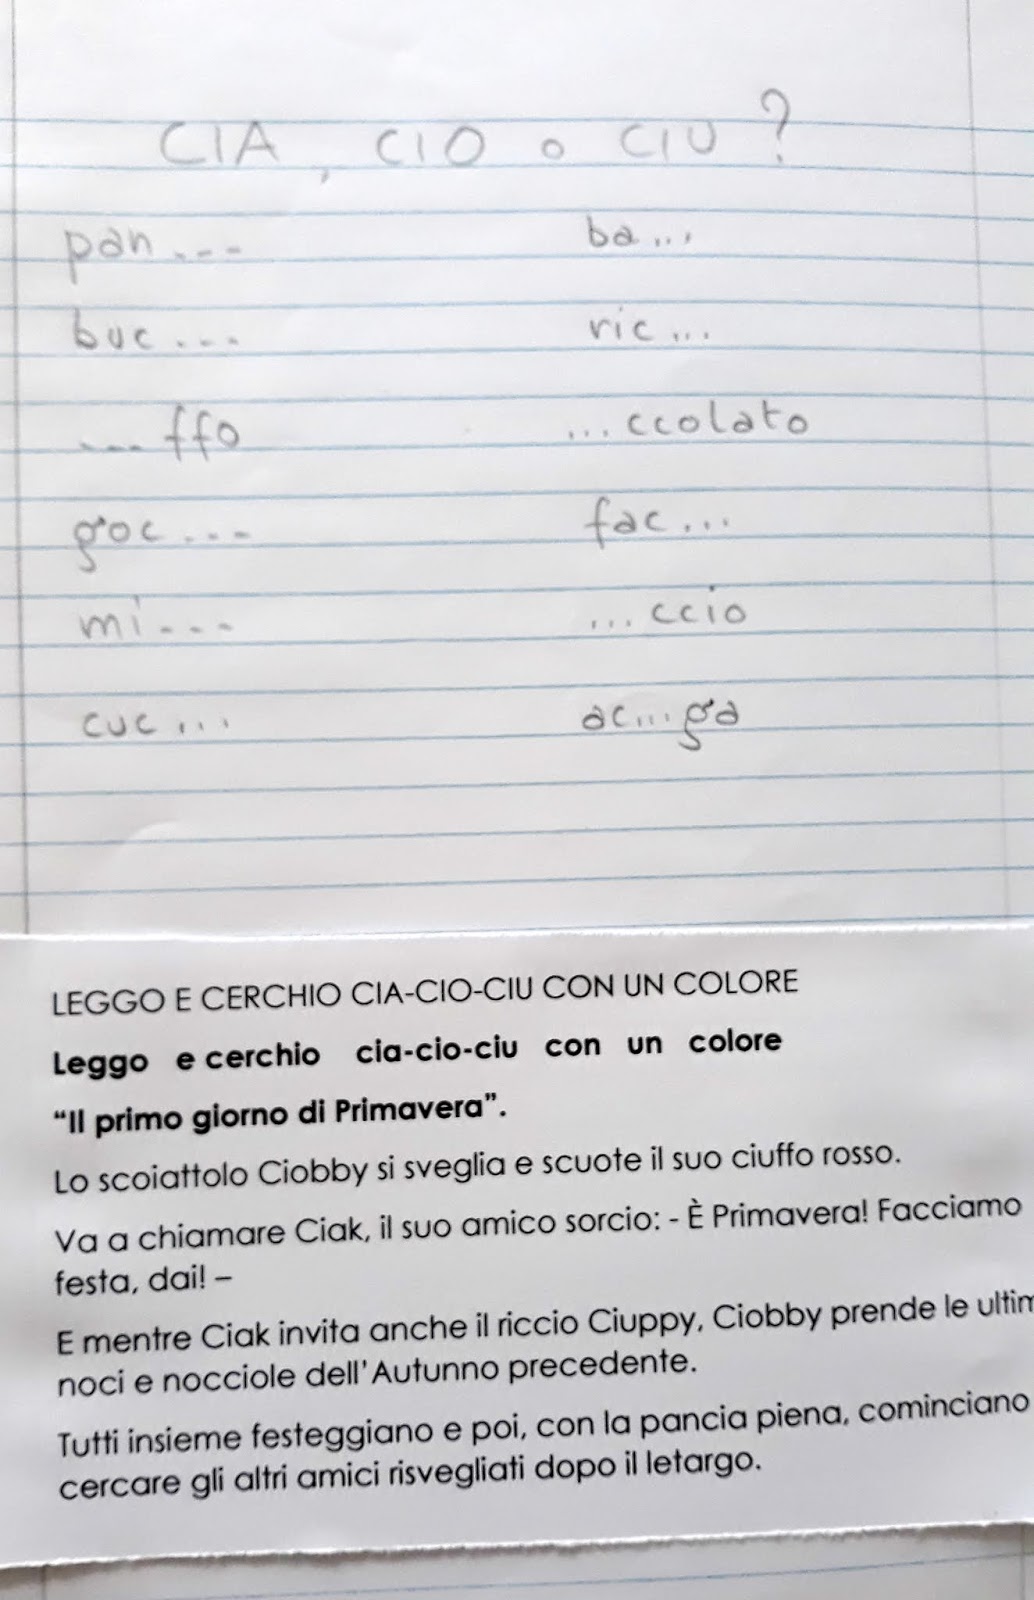 CIA, CIO o CIU ?
pan... ba...
buc... ric...
...ffo ...ccolato
goc... fac...
mi... ...ccio
cuc... ac...ga
LEGGO E CERCHIO CIA-CIO-CIU CON UN COLORE
Leggo e cerchio cia-cio-ciu con un colore
“Il primo giorno di Primavera”.
Lo scoiattolo Ciobby si sveglia e scuote il suo ciuffo rosso.
Va a chiamare Ciak, il suo amico sorcio: - È Primavera! Facciamo
festa, dai! –
E mentre Ciak invita anche il riccio Ciuppy, Ciobby prende le
noci e nocciole dell’Autunno precedente.
Tutti insieme festeggiano e poi, con la pancia piena, cominciano
cercare gli altri amici risvegliati dopo il letargo.